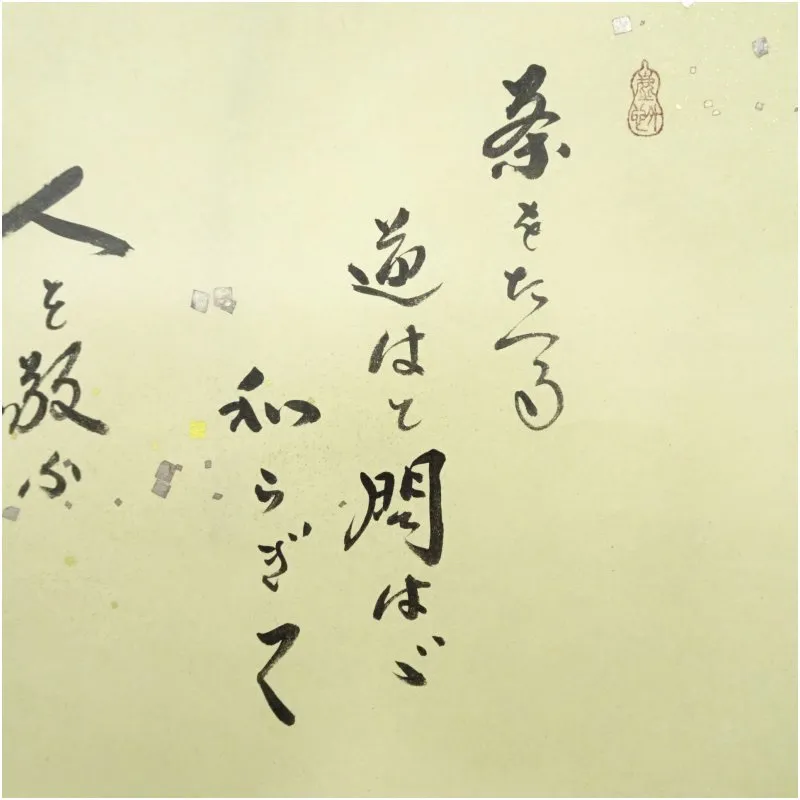 茶をたつる
道はと問はゞ
和らぎて
人を敬ふ